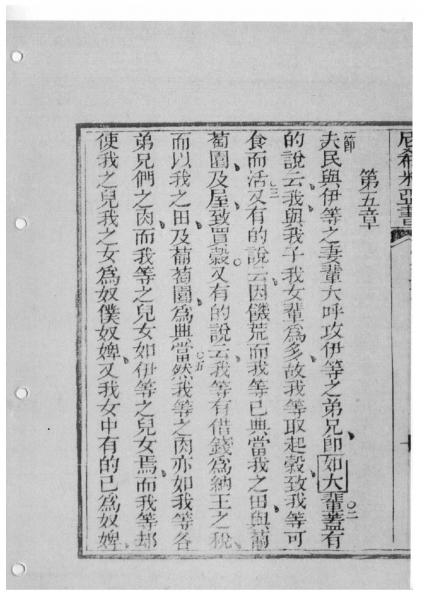 尼希米亞書
第五章
一節夫民與伊等之妻輩大呼攻伊等之弟兄卽如大輩蓋有
的說云我與我子我女輩爲多故我等取起穀致我等可
食而活又有的說云因饑荒而我等已典當我之田與葡
萄園及屋致買穀又有的說云我等有借錢爲納王之稅
而以我之田及葡萄園爲典當然我等之肉亦如我等各
弟兄們之肉而我等之兒女如伊等之兒女焉而我等却
使我之兒我之女爲奴僕奴婢又我女中有的已爲奴婢